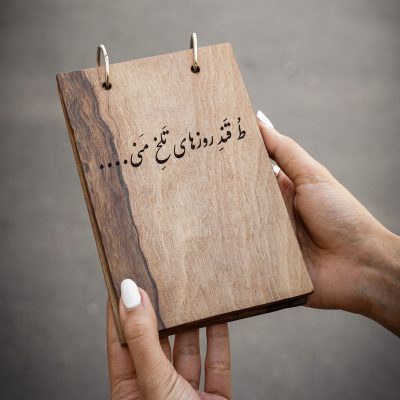 طُ قَندِ روزهای تَلخِ مَنی....